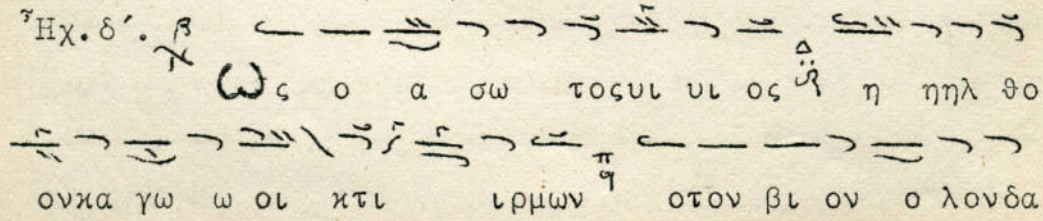 Ἦχ. δ´. β
Ως ο α σω τοςυι υι ος Δ η ηηλ θο
ονκα γω ω οι κτι ιρμων π q οτον βι ον ο λονδα